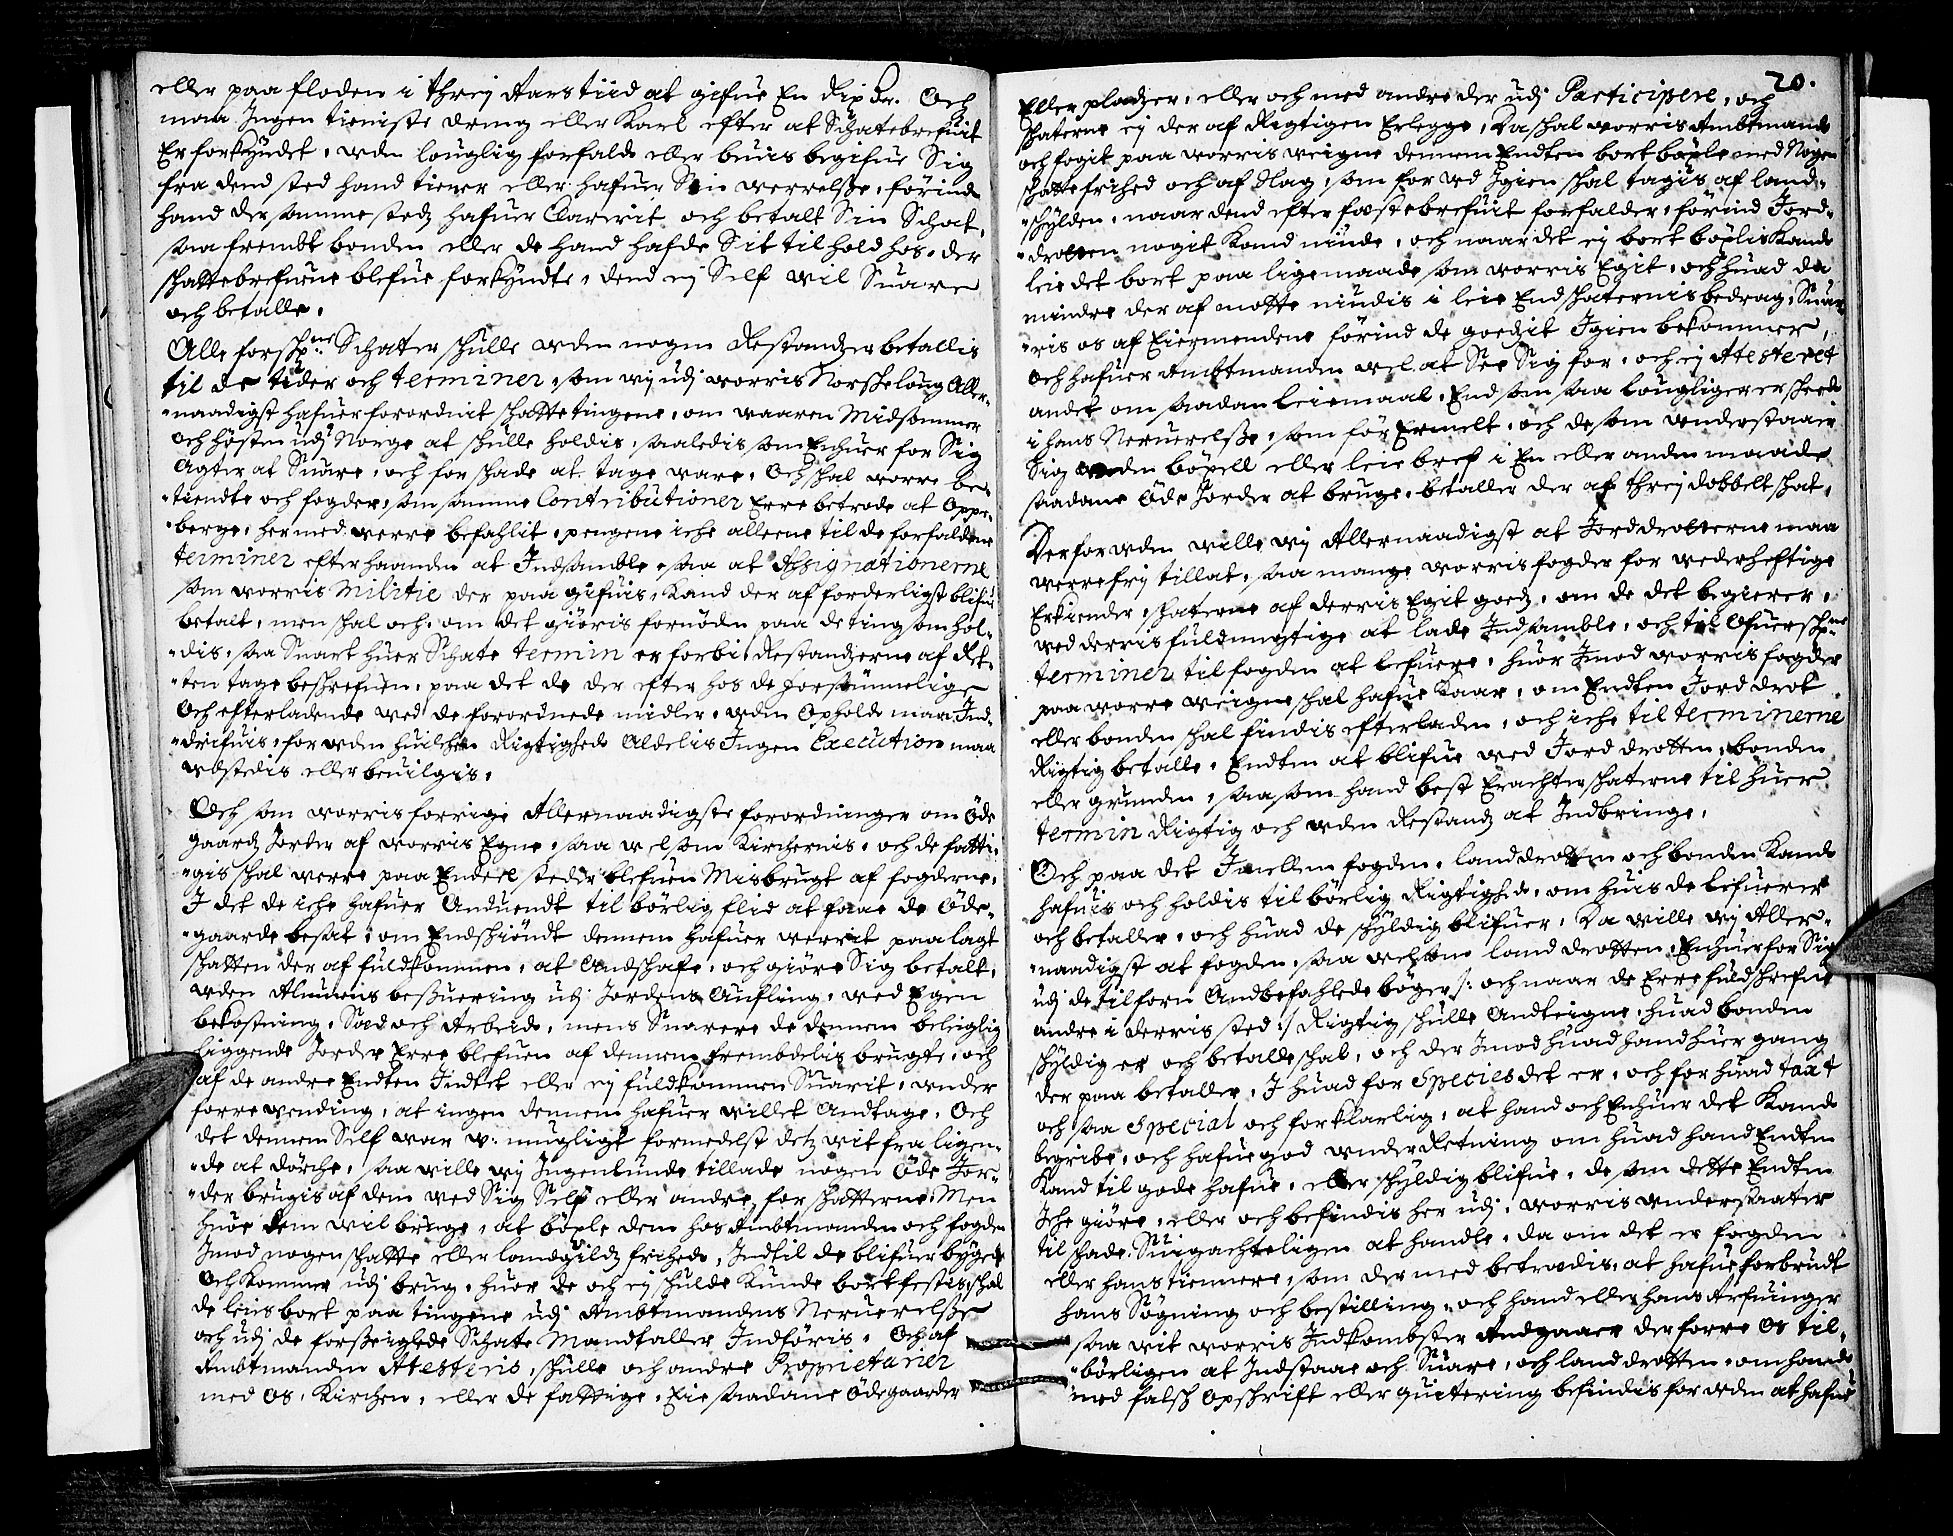 eller paa floden i threj Aars tiid at gifue En Rix Dr. Och
maa Ingen tieniste dreng eller Karl efter at Schatebrefuit
Er forkyndet, uden louglig forfald eller beuis begifue Sig
fra dend sted hand tiener eller hafuer Sin werrelsze, förind
hand der samme stedz hafuer Clarerit och betalt Sin Schat,
saa frembt bonden eller de hand hafde Sit tilhold hos, der
schattebrefuene blefue forkyndte, dend ej Self wil Suare
och betalle.
Alle forschne Schater schulle uden nogen Restandzer betallis
til de tider och terminer, som wij udj worris Norske loug Aller-
naadigst hafuer forordnit schattetingene, om waaren Midsommer
och hösten udj Norge at schulle holdis, saaledis som Enhuer for Sig
Agter at Suare, och for schade at tage ware, Och schal worre be-
tiendte och fogder, som samme Contributioner Erre betrode at Oppe-
berge, hermed werre befahlit, pengene iche alleene til de forfaldene
terminer efter haanden at Indsamble, saa at Assignationerne
som worris Militie der paa gifuis, Kand der af forderligst blifue
betalt, men schal och, om det giöris fornöden paa de ting som hol-
dis, saa Snart huer Schate termin er forbi, Restandzerne af Ret-
ten tage beschrefuen, paa det de der efter hos de forsömmelige
Och efterladende wed de forordnede midler, uden Ophold maa Ind-
drifuis, for uden huilchen Rigtighed Aldelis Ingen Execution maa
udstedis eller beuilgis.
Och som worris forrige Allernaadigste forordninger om Öde
gaardz Jorder af worris Egne, saa wel som Kirchernis, och de fatti-
gis schal werre paa Endeel steder blefuen Misbrugt af fogderne,
I det de iche hafuer Anduendt tilbörlig flid at faae de Öde-
gaarde besat, om Endschiöndt dennem hafuer werrit paalagt
schatten der af fuldkommen, at Andschafe, och giöre Sig betalt,
uden Almuens beszuering udj Jordens Aufling, wed Egen
bekostning, Sæd och Arbeide, mens Snarere de dennem beleiglig
liggende Jorder Erre blefuen af dennem frembdelis brugte, och
af de andre Endten Indtet eller ej fuldkommen Suarit, under
forrewending, at ingen dennem hafuer willet Andtage, Och
det dennem Self war u-mugligt formedelst detz wit fra ligen-
de at dörche, saa wille wij Ingenlunde tillade nogen Öde Jor-
der brugis af dem wed Sig Self eller andre for schatterne, Men
huor dem wil bruge, at böxle dem hos Ambtmanden och fogden
Imod nogen schatte eller landgildz friheds, Indtil de blifuer bygede
Och Kommer udj brug, huor de och ej schulde Kunde bortfestis, schal
de leies bort paa tingene udj Ambtmandens Neruerelsze
och udj de forseiglede Schate Mandtaller Indföris, Och af
Ambtmanden Atesteris, schulle och andre Proprietarier
med Os, Kirchen, eller de fattige, Eie saadane Ödegaarder
20.
Eller pladzer, eller och med andre der udj Participere, och
schaterne ej der af Rigtigen Erlegge, Da schal worris Ambtmand
och fogit paa worris weigne dennem Endten bortböxle med Nogen
schatte frihed och af slag, som for wed Igien schal tagis af land-
schylden, naar dend efter fæstebrefuit forfalder, förind Jord-
drotten nogit Kand niude, och naar det ej bort böxlis Kand
leie det bort paa ligemaade som worris Egit, och huad da
mindre der af motte niudis i leie End schaternis bedrag, Sua-
ris os af Eiermendene förind de goedzit Igien bekommer,
Och hafuer Ambtmanden wel at See Sig for, och ej Atesteret
andet om saadan leiemaal, End som saa lougligen er scheed
i hans Neruerelsze, som för Ermelt, och de som understaaer
Sig uden böxell eller leiebref i En eller anden maade
saadane Öde Jorder at bruge, betaller der af threj dobbelt schat,
Derforuden wille wij Allernaadigst at Jorddrotterne maa
werre frij tillat, saa mange worris fogder for wederheftige
Erkiender, schaterne af derris Egit goedz, om de det begierer,
wed derris fuldmegtige at lade Indsamble, och til Ofuerschne
terminer til fogden at lefuere, huor Imod worris fogder
paa worre weigne schal hafue Kaar, om Endten Jorddrot
eller bonden schal findis efterladen, och iche til terminerne
Rigtig betalle, Endten at blifue wed Jorddrotten, bonden
eller grunden, saa som hand best Erachter schaterne til huer
termin Rigtig och uden Restandz at Indbringe.
Och paa det Imellem fogden, landdrotten och bonden Kand
hafuis och holdis tilbörlig Rigtighed, om huis de lefuerer
och betaller, och huad de schyldig blifuer, Da wille wij Aller-
naadigst at fogden, saa wel som landdrotten, Enhuer for Sig
udj de tilforn Andbefahlede böger /: och naar de Erre fuldschrefne
andre i derris sted :/ Rigtig schulle Andteigne, huad bonden
schyldig er och betalle schal, och der Imod huad hand huer gang
der paa betaller, I huad for Species det er, och for huad taxt
och saa Special och forklarlig, at hand och Enhuer det Kand
begribe, och hafue god underRetning om huad hand Endten
Kand til gode hafue, eller schyldig blifue, de som dette Endten
Iche giöre, eller och befindis her udj, worris understaater
til schade Suigachteligen at handle, da om det er fogden
eller hans tiennere, som der med betrædis, at hafue forbrudt
hans Sögning och bestilling, och hand eller hans Arfuinger
saa wit worris Indkombster Andgaaer der forre Os til-
börligen at Indstaae och Suare, och landdrotten, om hand
med falsch Opschrift eller quitering befindis for uden at hafue